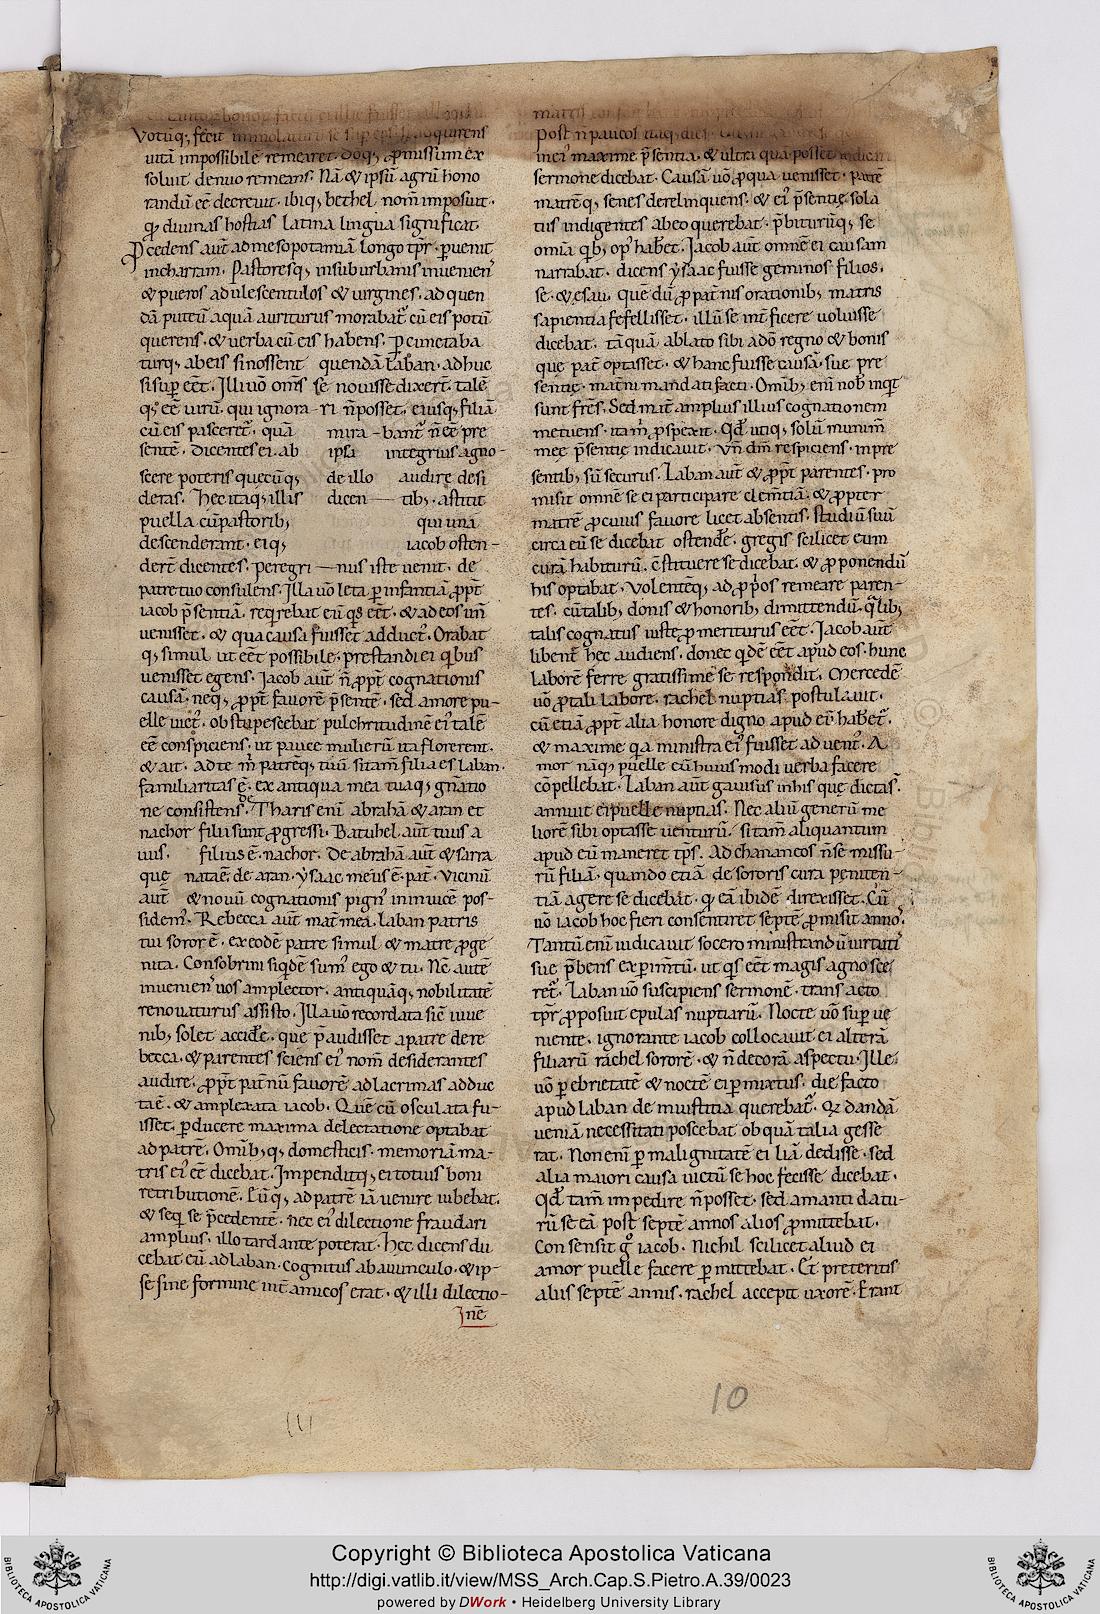 Votūq; fecit immolaturū se
uitā impossibilē remearet. Ꝺoq; ꝓmissum ex
soluit denuo remeans. Nā & ipsum agrū hono
randū eē decreuit. ibiq; bethel nom̄ imposuit.
q̇ diuinas hostias latina lingua significat
P̄cedens aut̄ ad mesopotamiā longo tp̄r. ꝑuenit
in charram. Pastoresq; in suburbanis inuenienſ
& pueros adulescentulos & uirgines. ad quen
dā puteū aquā auriturus morabat᷑ cū eis potū
querens. & uerba cū eis habens. ꝑcunctaba
turq; ab eis si nossent quendā laban. adhuc
si sup̄ eēt. Illi uō om̄s se nouisse dixer̄t. talē
q; eē uirū. qui ignora-ri n̄ posset. eiusq; filiā
cū eis pasceret᷑. quā mira-bant᷑ n̄ eē pre
sentē. dicentes ei. ab ipsa integrius agno-
scere poteris quecūq; de illo audire desi
deras. Hec itaq; illis dicen-tib; astitit
puella cū pastorib; qui una
descenderant. eiq; iacob osten-
der̄t dicentes. peregri-nus iste uenit. de
patre tuo consulens. Illa uō leta ꝑ infantiā ꝓpt̄
iacob p̄sentiā. req̇rebat eū q̇s eēt. & ad eos un̄
uenisset. & qua causa fuisset adduct᷑. Orabat
q; simul ut eēt possibile. prestandi ei q̇bus
uenisset egens. Iacob aut̄ n̄ ꝓpt̄ cognationis
causā. neq; ꝓpt̄ fauorē p̄sentē. sed amore pu-
elle uict᷑. obstupescebat pulchritudinē ei᷑ talē
eē conspiciens. ut pauce mulierū ita florerent.
& ait. Ad te m̄ patrēq; tuū si tam̄ filia es laban.
familiaritas ē. ex antiqua mea tuaq; gn̄atio
ne consistens. de Tharis enī abrahā & aran et
nachor filii sunt ꝓgressi. Batuhel aut̄ tuus a
uus. filius ē. nachor. De abrahā aut̄ & sarra
que natā ē de aran. ysaac meus ē. pat᷑. Vicinū
aut̄ & nouū cognationis pign᷑ inuicē pos-
sidem᷑. Rebecca aut̄ mat᷑ mea. laban patris
tui soror ē. ex eodē patre simul & matre ꝓge
nita. Consobrini siq̇dē sum᷑ ego & tu. Nc̄ autē
inuenienſ uos amplector. antiquāq; nobilitatē
renouaturus assisto. Illa uō recordata sic̄ iuue
nib; solet accid̄e. que p̄audisset a patre de re
becca. & parentes sciens ei᷑ nom̄ desiderantes
audire. ꝓpt̄ pat̄nū fauorē ad lacrimas adduc
ta ē. & amplexata iacob. Quē cū osculata fu-
isset. ꝑducere maxima delectatione optabat
ad patrē. Omīb;q; domesticis. memoriā ma-
tris ei᷑ eē dicebat. Impenditq; ei totius boni
retributionē. Cūq; ad patrē iā uenire iubebat.
& seq̇ se p̄cedentē. nec ei᷑ dilectione fraudari
amplius. illo tardante poterat. Hec dicens du
cebat eū ad laban. cognitus ab auunculo. & ip-
se sine formine int̄ amicos erat. & illi dilectio-
nē
Post n̄ paucos itaq; dies
in ei᷑ maxime p̄sentia. & ultra quā posset
sermone dicebat. Causā uō ꝓ qua uenisset. patrē
matrēq; senes derelinquens. & ei᷑ p̄sentię sola
tiis indigentes ab eo querebat. p̄biturūq; se
omīa q̇b; op᷑ haber̄et. Iacob aut̄ omnē ei causam
narrabat. dicens ysaac fuisse geminos filios.
se. & esau. quē dū ꝓ pat̄nis orationib; matris
sapientia fefellisset. illū se int̄ficere uoluisse
dicebat. tā quā ablato sibi adō regno & bonis
que pat᷑ optasset. & hanc fuisse causā. sue pre
sentię. mat̄ni mandati facti. Omīb; enī nob̄ inq̇t
sunt fr̄es. Sed mat᷑ amplius illius cognationem
metuens. ita m̄ ꝓspexit. Qd̄ utiq; solū munim̄
mee p̄sentię indicauit. Vn̄ dm̄ respiciens. in pre
sentib; sū securus. Laban aut̄ & ꝓpt̄ parentes. pro
misit omnē se ei participare clem̄tiā. & ꝓpter
matrē ꝓ cuius fauore licet absentis. studiū suū
circa eū se dicebat ostend̄e. gregis scilicet eum
curā habiturū. c̄stituere se dicebat. & ꝓponendū
his optabat. Volentēq; ad ꝓp̄os remeare paren-
tes. cū talib; donis & honorib; dimittendū. q̄lib;
talis cognatus iuste ꝓmeriturus eēt. Iacob aut̄
libent᷑ hec audiens. donec q̇dē eēt apud eos. hunc
laborē ferre gratissime se respondit. Mercedē
uō ꝓ tali labore. rachel nuptias postulauit.
cū etiā ꝓpt̄ alia honore digno apud eū haber̄et.
& maxime q̇a ministra ei᷑ fuisset aduent᷑. A
mor nāq; puelle eū huius modi uerba facere
cōpellebat. Laban aut̄ gauisus in his que dicta s̄.
annuit ei puelle nuptias. Nec aliū generū me
liorē sibi optasse uenturū. si tam̄ aliquantum
apud eū maneret tp̄s. Ad chananeos n̄ se missu-
rū filiā. quando etiā de sororis cura peniten-
tiā agere se dicebat. q̇ eā ibidē direxisset. Cū
uō iacob hoc fieri consentiret septē ꝓmisit annos.
Tantū enī iudicauit socero ministrandū uirtuti᷑
sue p̄bens exꝑim̄tū. ut q̇s eēt magis agnosce
ret᷑. Laban uō suscipiens sermonē. transacto
tp̄r ꝓposuit epulas nuptiarū. Nocte uō suꝑ ue
niente. ignorante iacob collocauit ei alterā
filiarū rachel sororē. & n̄ decorā aspectu. Ille
uō ꝑ ebrietatē & noctē ei ꝑmixtus. die facto
apud laban de iniustitia querebat᷑. Qi dandā
ueniā necessitati poscebat ob quā talia gesse
rat. Non enī ꝑ malignitatē ei liā dedisse. sed
alia maiori causa uictū se hoc fecisse dicebat.
Qd̄ tam̄ impedire n̄ posset. sed amanti datu-
rū se eā post septē annos alios ꝓmittebat.
Consensit g̊ iacob. Nichil scilicet aliud ei
amor puelle facere ꝑmittebat. Et preteritis
aliis septē annis. rachel accepit uxorē. Erant
10
Copyright © Biblioteca Apostolica Vaticana
http://digi.vatlib.it/view/MSS_Arch.Cap.S.Pietro.A.39/0023
powered by DWork • Heidelberg University Library
BIBLIOTECA APOSTOLICA VATICANA
BIBLIOTECA APOSTOLICA VATICANA